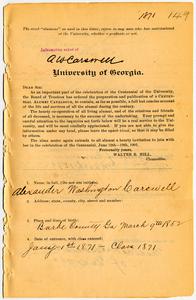 1871 149
The word "alumnus" as used in this letter, refers to any man who has matriculated
at the University, whether a graduate or not.
Information asked of
A W Carswell
University of Georgia.
DEAR SIR:
As an important part of the celebration of the Centennial of the University,
the Board of Trustees has ordered the preparation and publication of a CENTEN-
NIAL ALUMNI CATALOGUE, to contain, as far as possible, a full but concise account
of the life and services of all the alumni during the century.
The trustees and alumni and the relatives and friends
of all deceased, in
The most careful
attention to the inquiries set forth below will be a real service to the Uni-
versity, and its prompt return will be appreciated. If you are unable to give the
information under any head, please leave the space vacant, so that it may be filled
by others.
The class union again extends to all alumni a hearty invitation to join with
us in the celebration of the Centennial, June 15th-19th, 1901.
Fraternally yours,
WALTER B. HILL,
Chancellor.
1. Name, in full, (Do not use initials).
Alexander Washington Carswell
2. Address; state, county, city, street and number:
3. Place and time of birth:
Burke County Ga March 9th 1852
4. Date of entrance, with class entered:
Jany 1st 1871 Class 1871